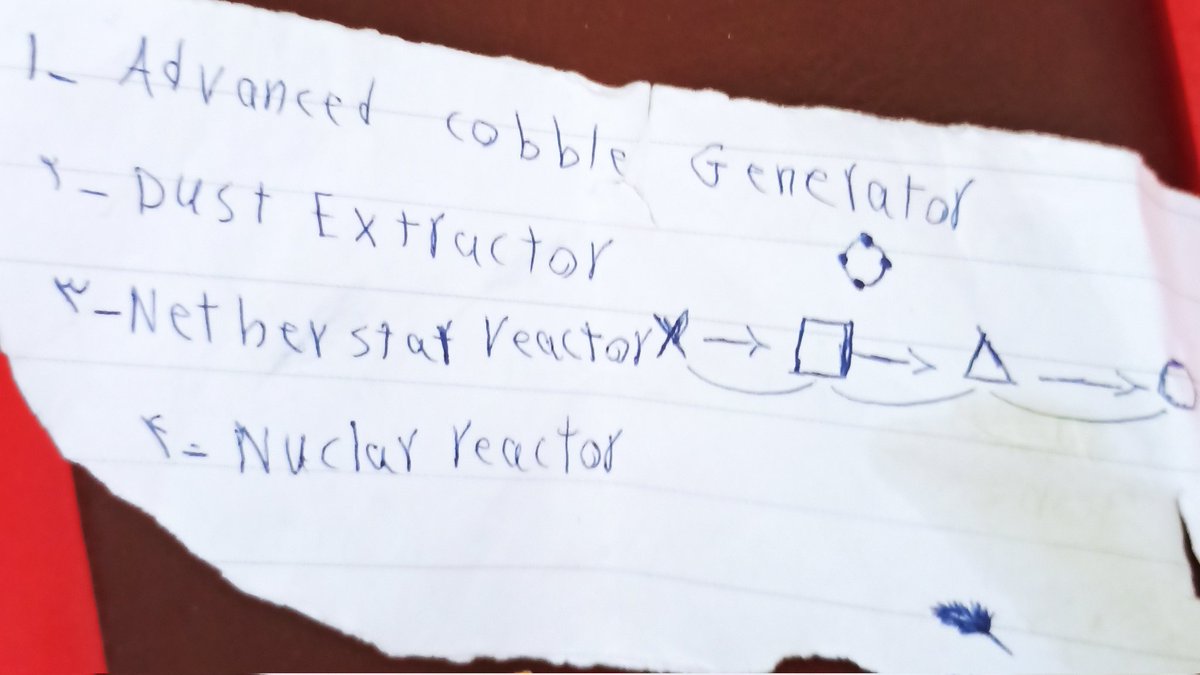 ۱- Advanced cobble Generator
۲- Dust Extractor
۳- Nether star reactor
۴- Nuclar reactor